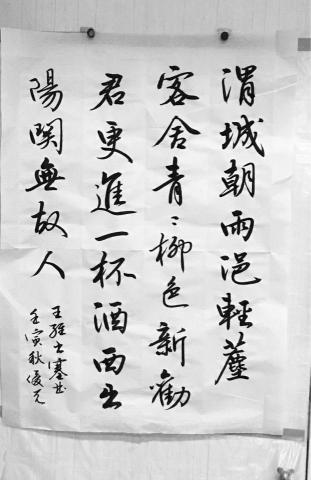 渭城朝雨浥輕塵
客舍青〻柳色新勸
君更進一杯酒西出
陽関無故人
王維出塞
壬寅秋優元